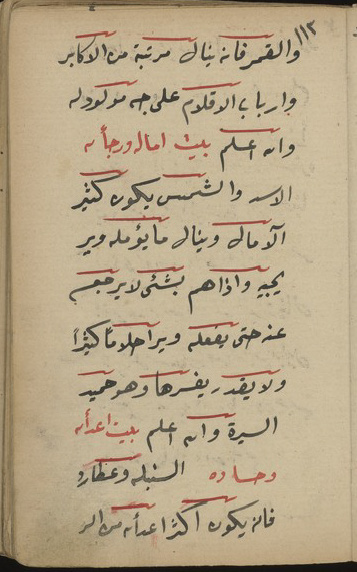 ١١٢
والقمر فانه ينال مرتبة من الاكابر
وارباب الاقلام على جه مولودله
والله اعلم بيت اماله ورجأيه
الاسد والشمس يكون كثير
الآمال وينال مايؤمله وير
يجيه واذا هم بشئ لا يرجع
عنه حتى يفعله ويرا احلاما كثيرا
ولا يقدر يفسرها وهو حميد
السيرة والله اعلم بيت اعدأيه
وحساده السنبله وعطارد
فانه يكون اكثر اعدأيه من